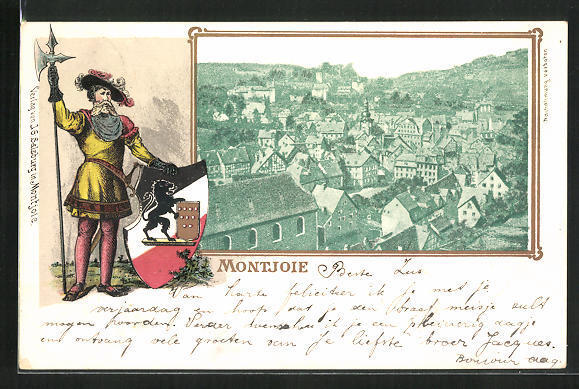 Verlag von I.S. Salzburg in Montjoie.
Nachahmung verboten
MONTJOIE
Beste Zus
Van harte feliciteer ik je met je
verjaardag en hoop, dat je een braaf meisje zult
mogen worden. Verder wensch ik je een pleizierig dagje
en ontvang vele groeten van je liefste broer Jacques.
Bonjour dag.